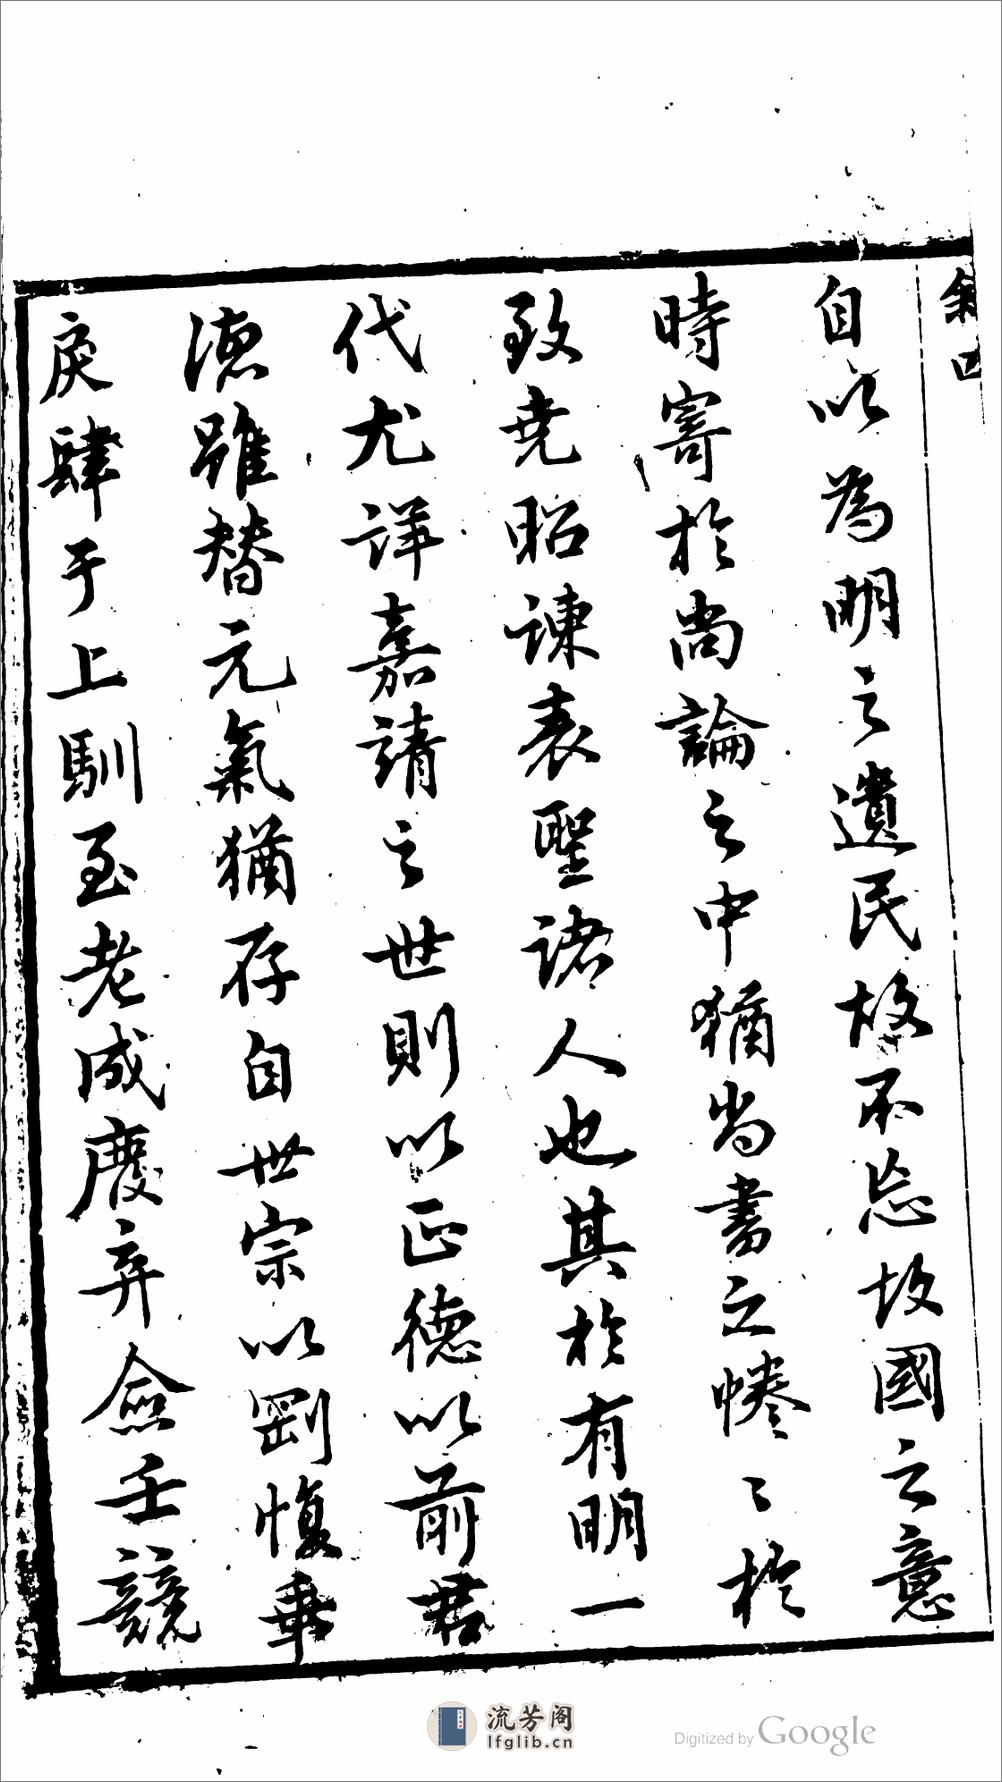 敘四
自以為明之遺民故不忘故國之意
時寄於尚論之中猶尚書之惓々於
致堯昭諫表聖諸人也其於有明一
代尤詳嘉靖之世則以正德以前君
德雖替元氣猶存自世宗以剛愎乖
戾肆于上馴至老成廢弃僉壬競
流芳阁
lfglib.cn
Digitized by Google